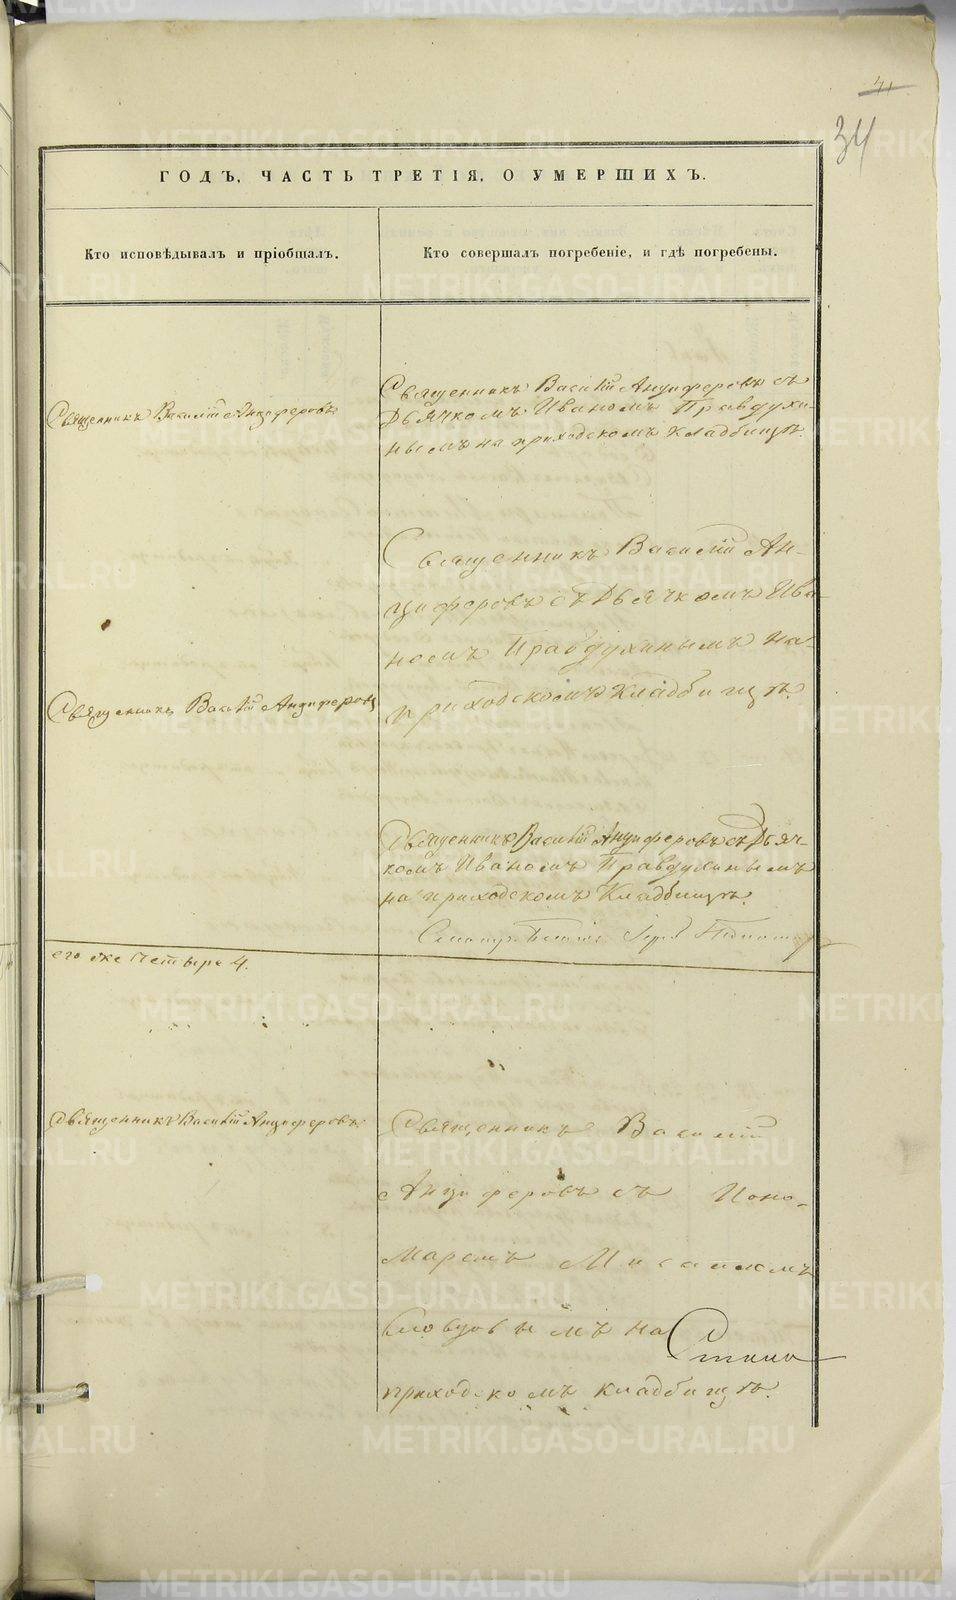 41
34
ГОДЪ, ЧАСТЬ ТРЕТІЯ, О УМЕРШИХЪ.
Кто исповѣдывалъ и пріобщалъ.
Кто совершалъ погребеніе, и гдѣ погребены.
Священникъ Василій Анциферовъ
Священникъ Василій Анциферовъ съ
Дьячкомъ Иваномъ Правдухи-
нымъ на приходскомъ кладбищѣ.
Священникъ Василій Ан-
циферовъ съ Дьячкомъ Ива-
номъ Правдухинымъ на
приходскомъ кладбищѣ.
Священникъ Василій Анциферовъ
Священникъ Василій Анциферовъ съ Дьяч-
комъ Иваномъ Правдухинымъ
на приходскомъ Кладбищѣ.
его же Четыре 4.
Священникъ Василій Анциферовъ
Священникъ Василій
Анциферовъ съ Поно-
маремъ Мисаиломъ
Словцовымъ на
приходскомъ кладбищѣ.
METRIKI.GASO-URAL.RU